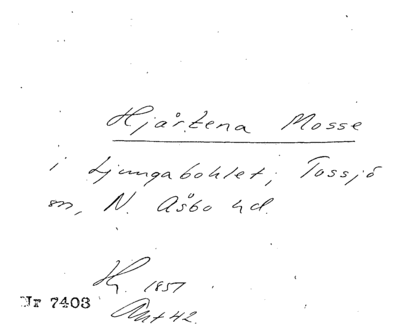 Hjärtena Mosse
i Ljungabohlet, Tossjö
sn, N. Åsbo hd.
1851
Akt 42.
Nr 7403